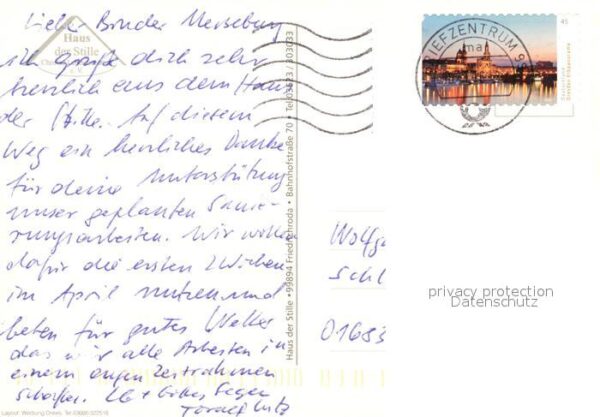 Lieber Bruder Merseburg
Haus
der Stille
ich grüße dich sehr
herzlich aus dem Haus
der Stille. Auf diesem
Weg ein herzliches Danke
für deine Unterstützung
unser geplanten Sanie-
rungsarbeiten. Wir wollen
dafür die ersten 2 Wochen
im April nutzen und
beten für gutes Wetter
das wir alle Arbeiten in
einem engen Zeitrahmen
schaffen. LG + Gottes Segen
Layout: Werbung Drews, Tel
Haus der Stille • 99894 Friedrichroda • Bahnhofstraße 70 • Tel 03623 / 303033
BRIEFZENTRUM 99
ma
45
Dresden
Wolfga
Schl
01683
privacy protection
Datenschutz